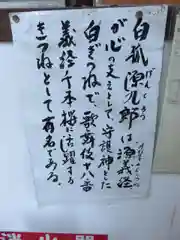 白狐源九郎は源義経
げんくろう
が心の支えとして、守護神とした
白ぎつねで、歌舞伎十八番
義経千本桜に活躍する
きつねとして有名である。